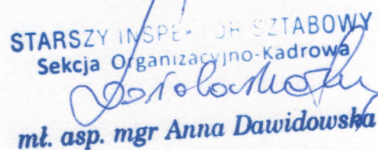 STARSZY INSPEKTOR SZTABOWY
Sekcja Organizacyjno-Kadrowa
mł. asp. mgr Anna Dawidowska